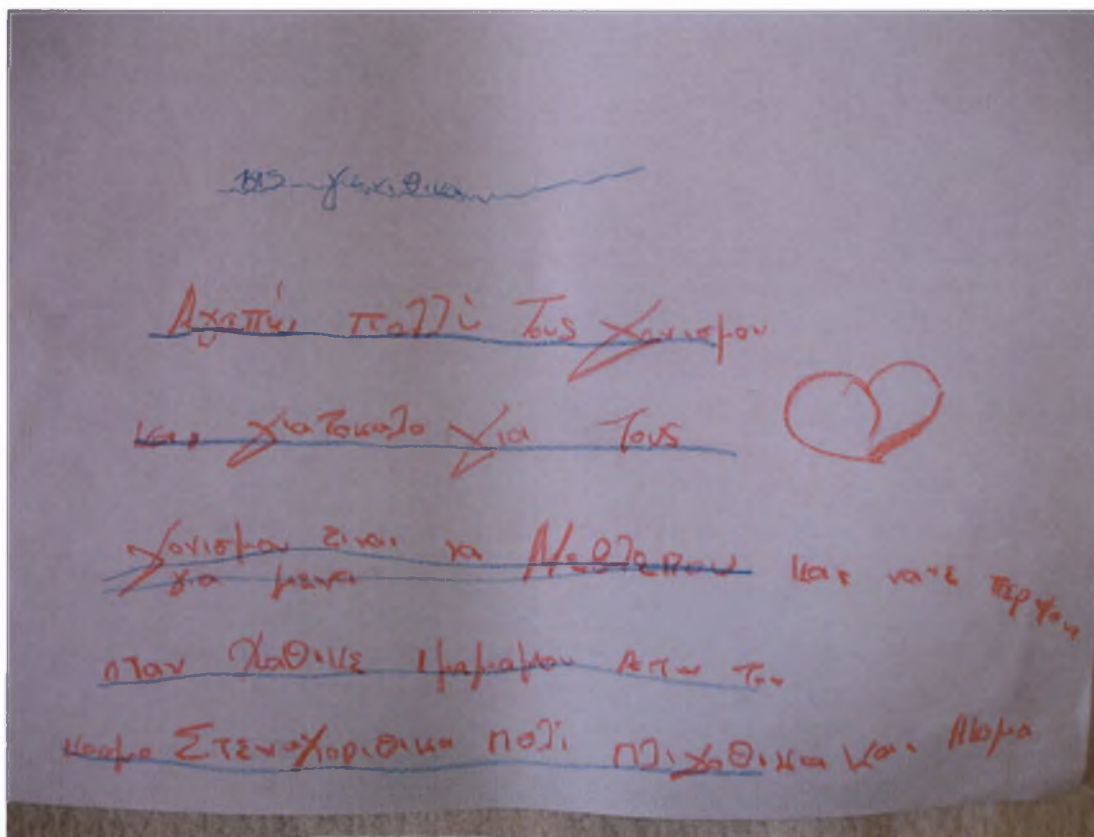 Αγαπάι πολλί Τους γονισμου
και για το καλο για Τους
γονισμου ειναι να Με βλεπουν και να με
για μενα
οταν χαθικε ι μαμα μου Απτων τον
κοσμο Στεναχοριθικα πολι πλιγοθικα και Αιομα